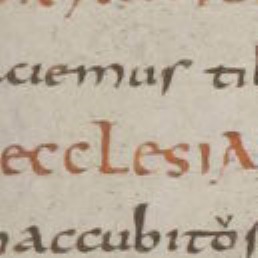 ciemus ti
ecclesia
accubitos